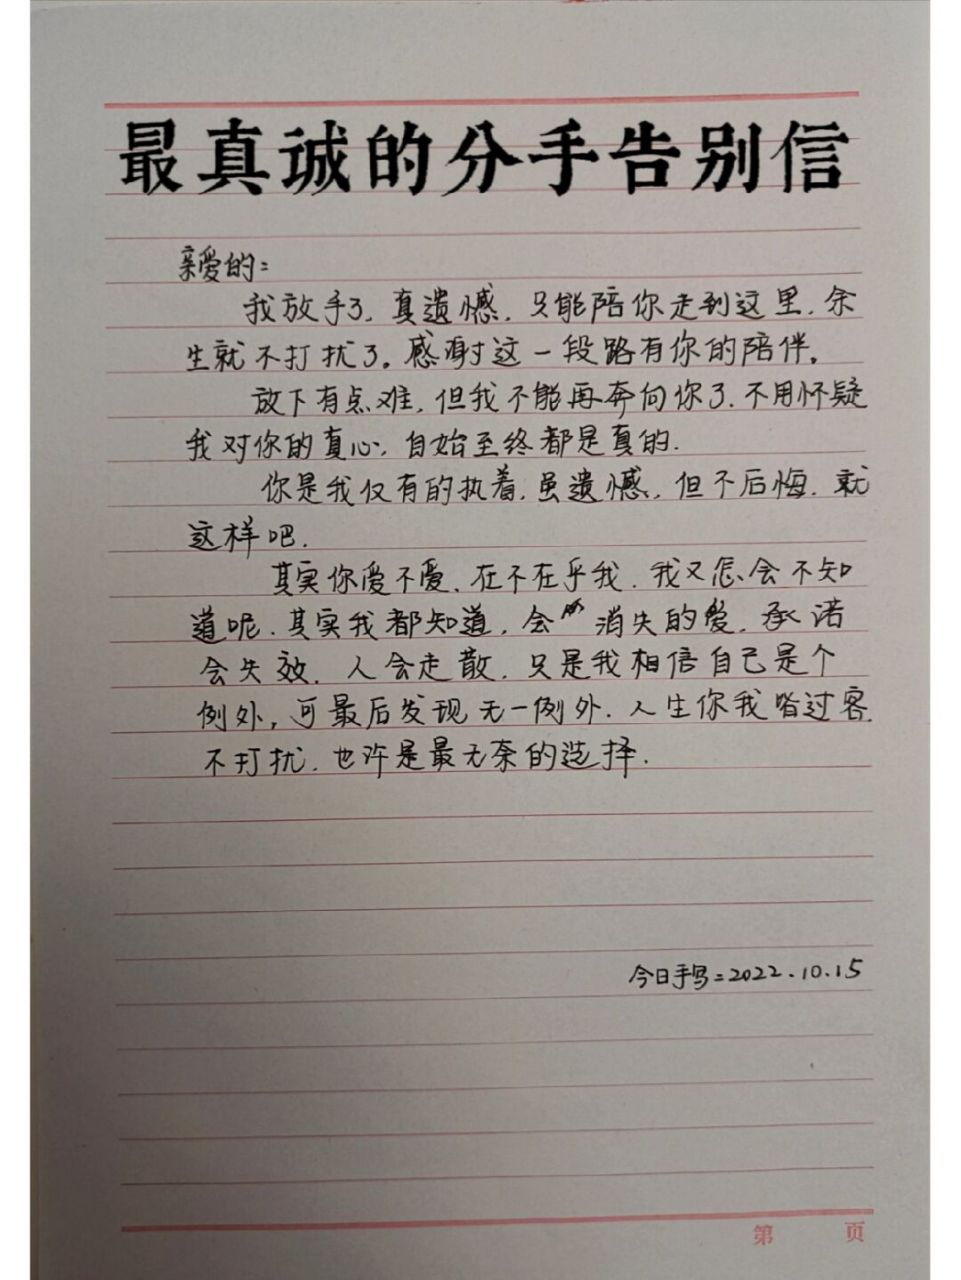 最真诚的分手告别信
亲爱的:
我放手了,真遗憾,只能陪你走到这里,余
生就不打扰了。感谢这一段路有你的陪伴。
放下有点难,但我不能再奔向你了.不用怀疑
我对你的真心,自始至终都是真的.
你是我仅有的执着,虽遗憾,但不后悔.就
这样吧.
其实你爱不爱,在不在乎我,我又怎会不知
道呢.其实我都知道,会消失的爱,承诺
会失效,人会走散,只是我相信自己是个
例外,可最后发现无一例外.人生你我皆过客
不打扰,也许是最无奈的选择.
今日手写:2022.10.15
第 页